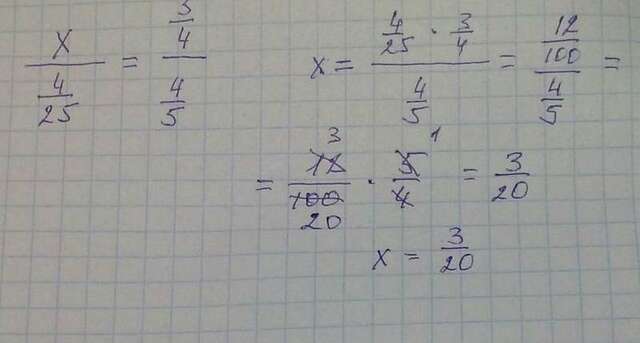 x/(4/25) = (3/4)/(4/5)
x = (4/25 · 3/4)/(4/5) = (12/100)/(4/5) =
= 12/100 · 5/4 = 3/20
3 1
20
x = 3/20